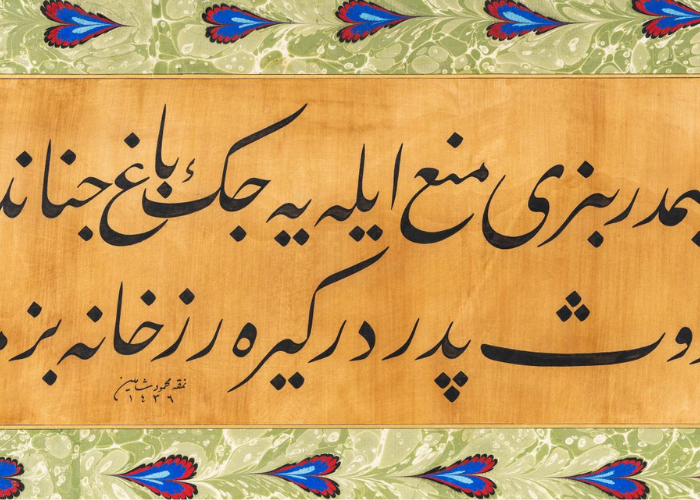 یمدر بزی منع ایله یه جك باغ جناند
روث پدردر كیره رز خانه بز
نمقه محمود شاهین
١٤٣٩